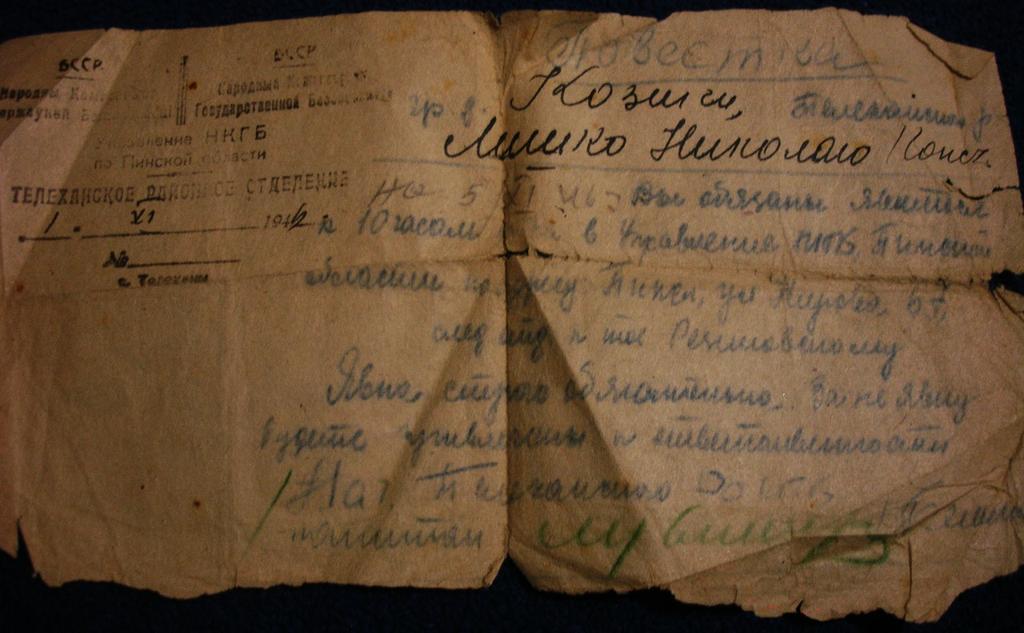 БССР
Народны Камісарыят
Дзяржаўнай Бяспекі
БССР
Народный Комиссариат
Государственной Безопасности
Управление НКГБ
по Пинской области
ТЕЛЕХАНСКОЕ РАЙОННОЕ ОТДЕЛЕНИЕ
1. XI 194
№
с Телеханы
Повестка
гр д. Козики, Телеханского р
Мишко Николаю Конст.
На 5 XI 46 Вы обязаны явиться
к 10 часам в Управление Пинской
области по адресу Пинск, ул Кирова 67,
след отд к тов
Явка строго обязательна. За не явку
будете привлечены к ответственности
Нач Телеханского
капитан